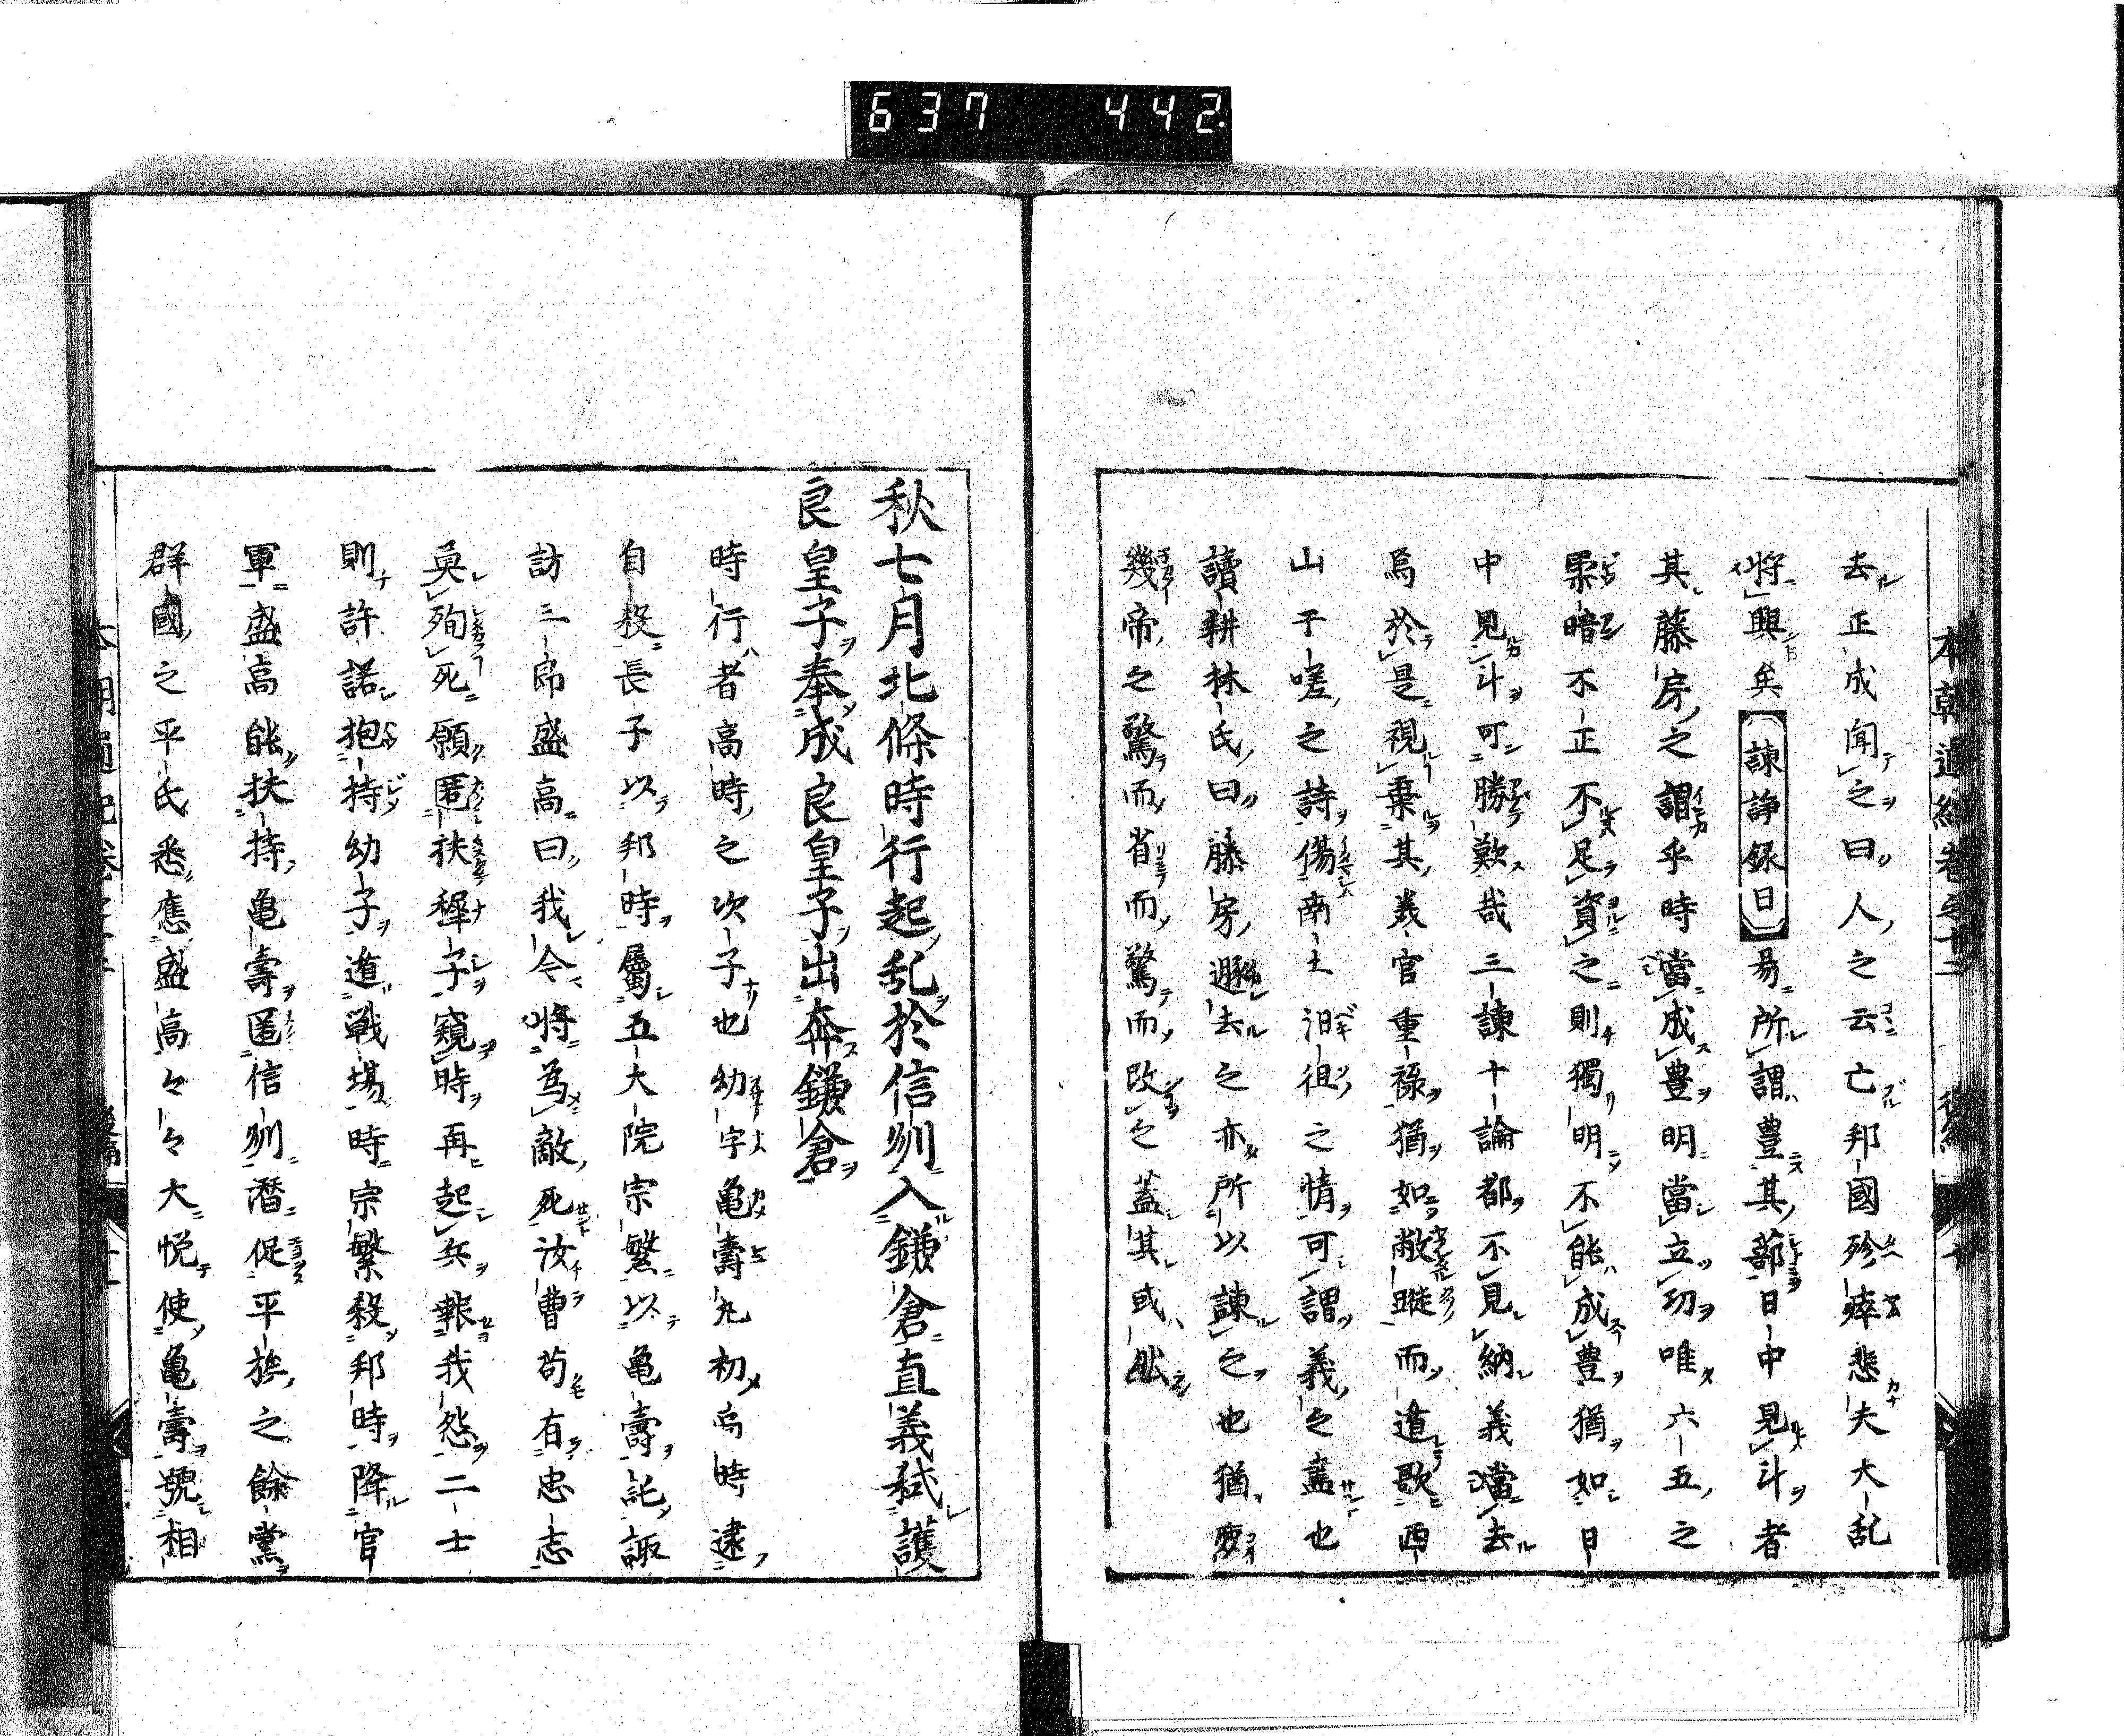 637 442.
本朝通紀卷之十二 後編 十
去正成聞之曰人之云亡邦國殄瘁悲夫大乱
將興矣諫諍録曰易所謂豊其蔀日中見斗者
其藤房之謂乎時當成豊明當立功唯六五之
柔暗不正不足資之則獨明不能成豊猶如日
中見斗可勝歎哉三諫十論都不見納義當去
焉於是視棄其義官重祿猶如敝蹝而遁歌西
山于嗟之詩傷南土汨徂之情可謂義之盡也
讀耕林氏曰藤房遯去之亦所以諫之也猶要
幾帝之驚而省而驚而改之蓋其或然
秋七月北條時行起乱於信州入鎌倉直義弑護
良皇子奉成良皇子出奔鎌倉
時行者高時之次子也幼字亀壽丸初高時逮
自殺長子以邦時屬五大院宗繁以亀壽託諏
訪三郎盛高曰我令將為敵死汝曹苟有忠志
莫殉死願匿扶穉子窺時再起兵報我怨二士
則許諾抱持幼子遁戦場時宗繁殺邦時降官
軍盛高能扶持亀壽匿信州潛促平族之餘黨
群國之平氏悉應盛高々々大悦使亀壽號相